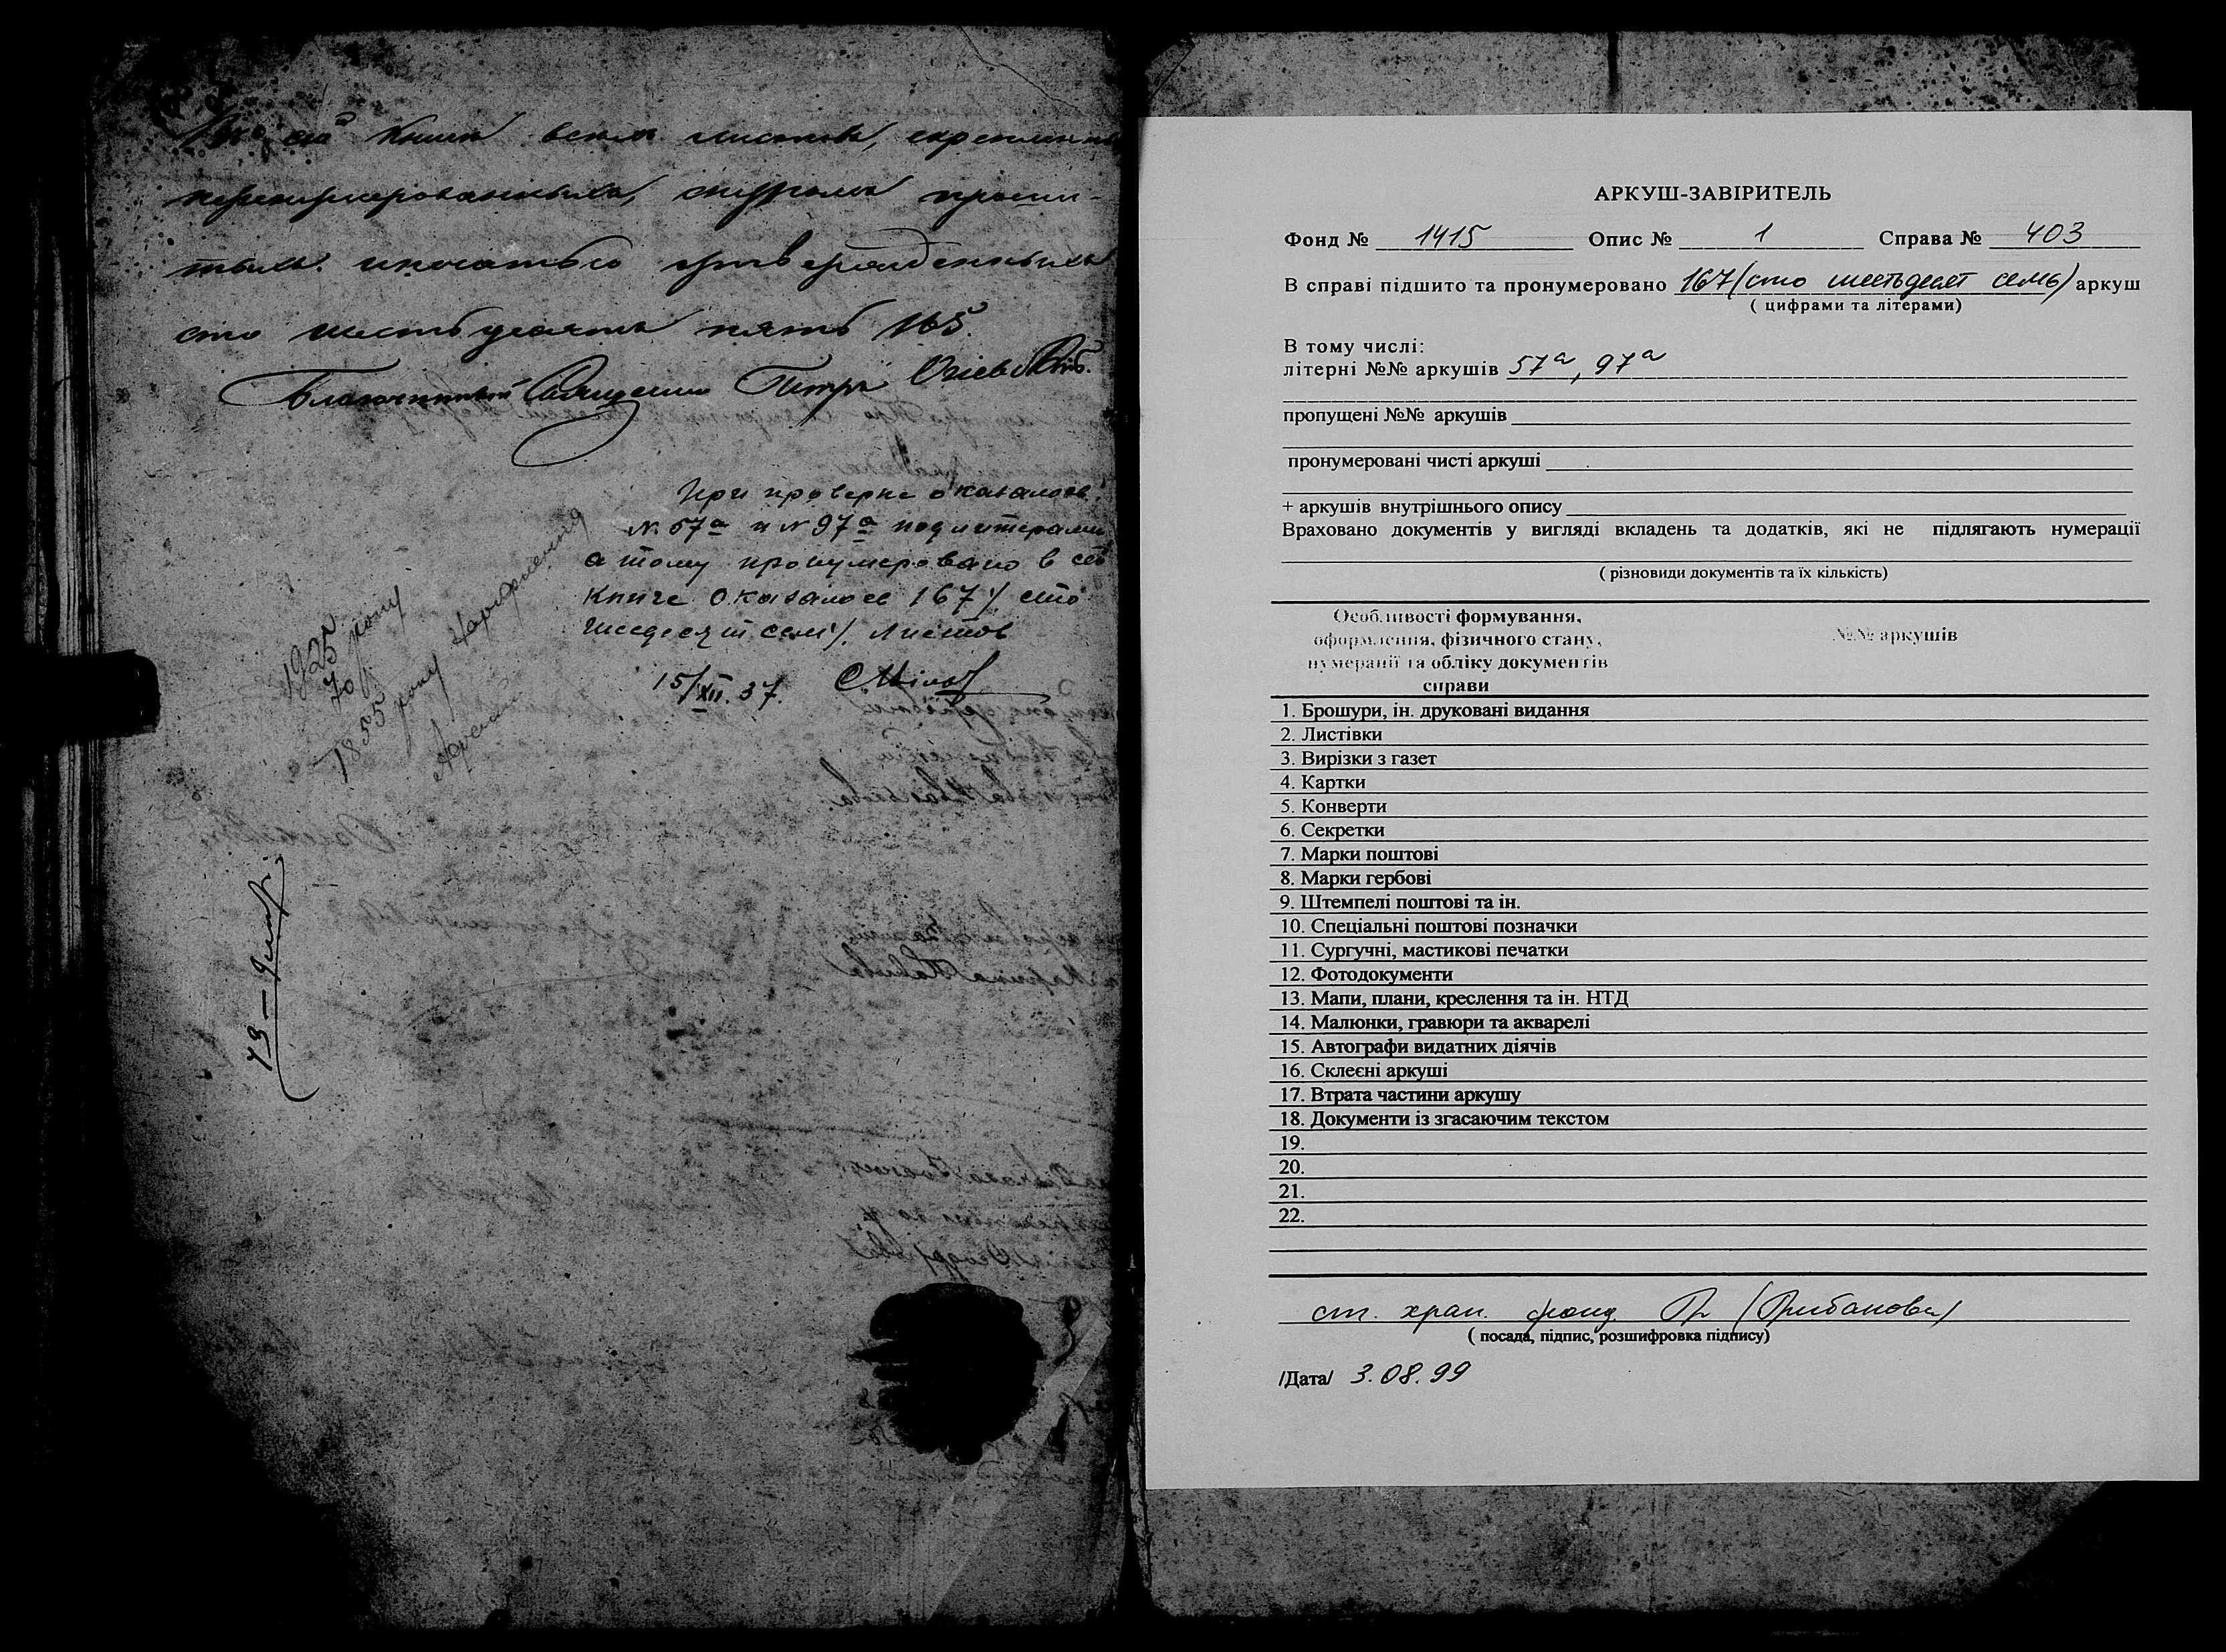 книга всего листов, скрепленных
перенумерованных, шнуром проши-
тых и печатью утвержденных
сто шестьдесят пять 165.
Благочинный Священник Петр
При проверке оказалось
№ 57а и № 97а под литерами
а тому пронумеровано в сей
книге оказалось 167 /. сто
шесдесят семь /. Листов
15/XII. 37.
1925 року
70
1855 року народження
АРКУШ-ЗАВІРИТЕЛЬ
Фонд № 1415 Опис № 1 Справа № 403
В справі підшито та пронумеровано 167 (сто шестьдесят семь) аркуш
( цифрами та літерами)
В тому числі:
літерні №№ аркушів 57а, 97а
пропущені №№ аркушів
пронумеровані чисті аркуші
+ аркушів внутрішнього опису
Враховано документів у вигляді вкладень та додатків, які не підлягають нумерації
( різновиди документів та їх кількість)
Особливості формування,
оформлення, фізичного стану,
нумерації та обліку документів
справи
№№ аркушів
1. Брошури, ін. друковані видання
2. Листівки
3. Вирізки з газет
4. Картки
5. Конверти
6. Секретки
7. Марки поштові
8. Марки гербові
9. Штемпелі поштові та ін.
10. Спеціальні поштові позначки
11. Сургучні, мастикові печатки
12. Фотодокументи
13. Мапи, плани, креслення та ін. НТД
14. Малюнки, гравюри та акварелі
15. Автографи видатних діячів
16. Склеєні аркуші
17. Втрата частини аркушу
18. Документи із згасаючим текстом
19.
20.
21.
22.
ст. хран. фонд.
( посада, підпис, розшифровка підпису)
/Дата/ 3.08.99